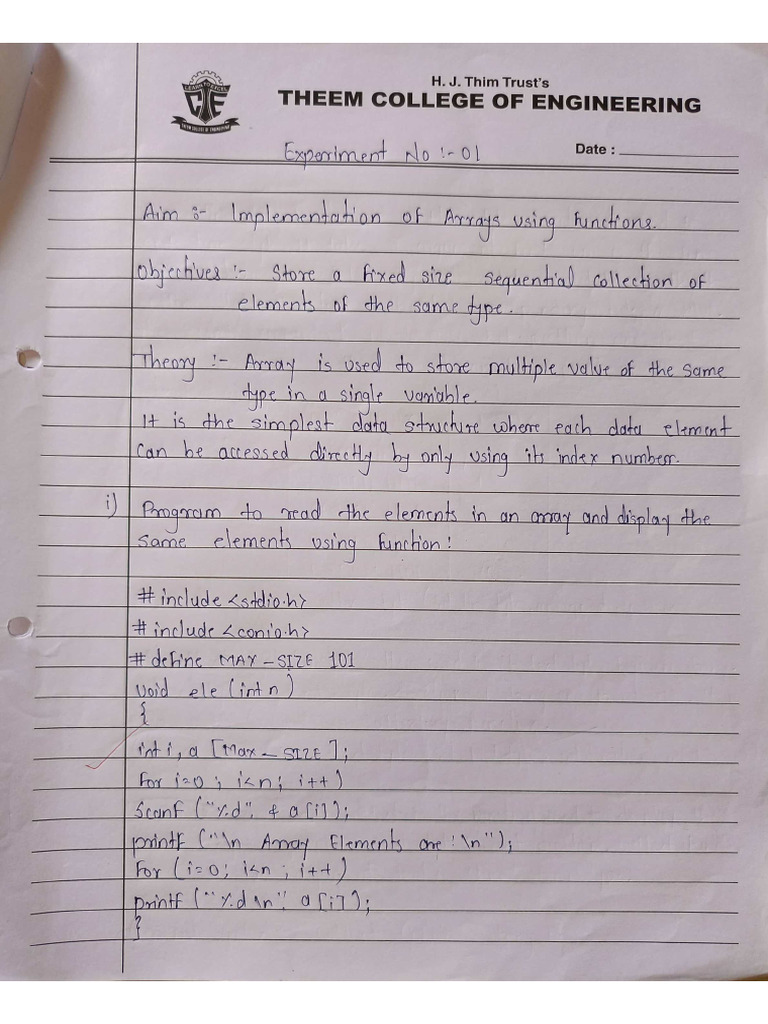 H. J. Thim Trust's
THEEM COLLEGE OF ENGINEERING
LEARN TO EXCEL
THEEM COLLEGE OF ENGINEERING
Experiment No :- 01
Date :
Aim :- Implementation of Arrays using Functions.
Objectives :- Store a fixed size sequential collection of
elements of the same type.
Theory :- Array is used to store multiple value of the same
type in a single variable.
It is the simplest data structure where each data element
can be accessed directly by only using its index number.
i) Program to read the elements in an array and display the
same elements using function :
# include <stdio.h>
# include <conio.h>
# define MAX_SIZE 101
void ele (int n)
{
int i, a [Max_SIZE];
For i=0 ; i<n ; i++)
Scanf ("%d", & a[i]);
printf ("\n Array Elements are : \n");
For (i=0; i<n ; i++)
printf ("%d \n", a[i]);
}